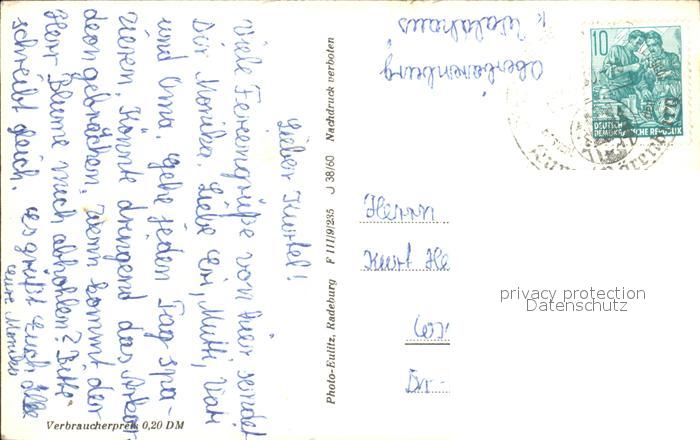 Lieber Kurtel!
Viele Feriengrüße von hier sendet
Dir Monika. Liebe Eri, Mutti, Vati
und Oma, gehe jeden Tag spa-
zieren. Könnte dringend das Akkor-
deon gebrauchen. Wenn kommt der
Herr Blume mich abholen? Bitte
schreibt gleich. Es grüßt Euch alle
eure Monika
Verbraucherpreis 0,20 DM
Photo-Eulitz, Radeburg F III/9/235 J 38/60 Nachdruck verboten
Oberbärenburg
Waldhaus
10
DEUTSCHE
DEMOKRATISCHE REPUBLIK
Herrn
Kurt He
privacy protection
Datenschutz